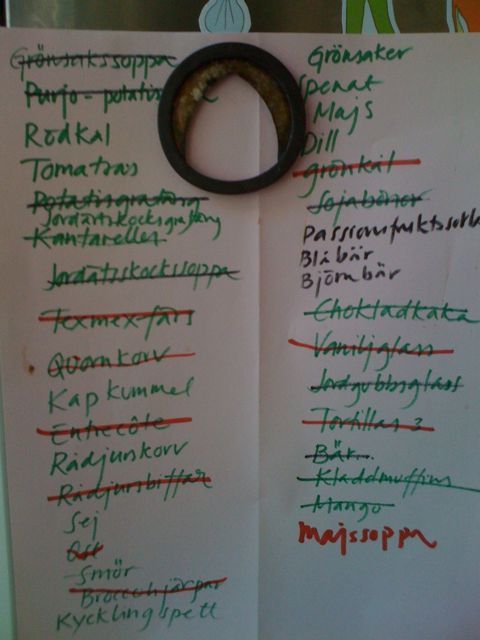 Grönsakssoppa
Purjo-potatis
Rödkål
Tomatsås
Potatisgratäng
Jordärtskocksgratäng
Kantareller
Jordärtskockssoppa
Texmex-färs
Quornkorv
Kapkummel
Entrecôte
Rådjurskorv
Rådjursbiffar
Sej
Ost
Smör
Broccolijärpar
Kycklingspett
Grönsaker
Spenat
Majs
Dill
grönkål
Sojabönor
Passionsfruktssorbe
Blåbär
Björnbär
Chokladkaka
Vaniljglass
Jordgubbsglass
Tortillas 2
Bär
Kladdmuffins
Mango
Majssoppa